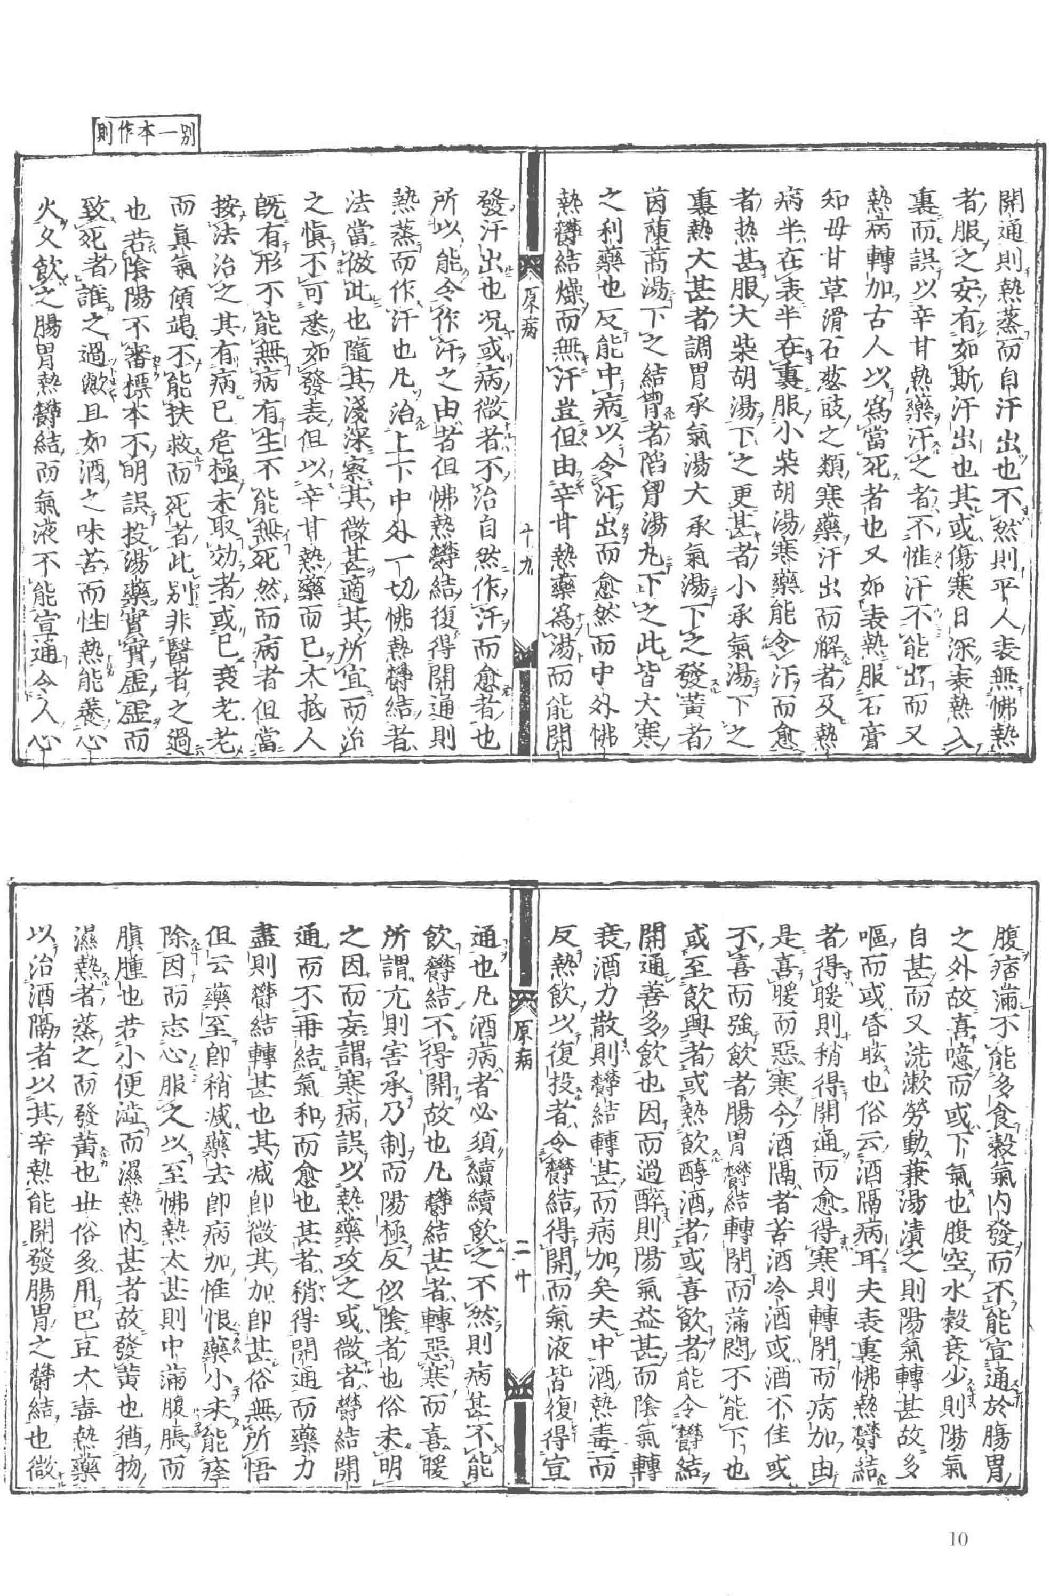 別一本作則
開通則熱蒸而自汗出也不然則平人表無怫熱
者服之安有如斯汗出也其或傷寒日深表熱入
裏而誤以辛甘熱藥汗之者不惟汗不能出而又
熱病轉加古人以爲當死者也又如表熱服石膏
知母甘草滑石葱豉之類寒藥汗出而解者及熱
病半在表半在裏服小柴胡湯寒藥能令汗而愈
者热甚服大柴胡湯下之更甚者小承氣湯下之
裏熱大甚者調胃承氣湯大承氣湯下之發黃者
茵蔯蒿湯下之結胷者陷胷湯丸下之此皆大寒
之利藥也反能中病以令汗出而愈然而中外怫
熱鬱結燥而無汗豈但由辛甘熱藥爲湯而能開
原病
十九
發汗出也况或病微者不治自然作汗而愈者也
所以能令作汗之由者但怫熱鬱結復得開通則
熱蒸而作汗也凡治上下中外一切怫熱鬱結者
法當倣此也隨其淺深察其微甚適其所宜而治
之慎不可悉如發表但以辛甘熱藥而已大抵人
旣有形不能無病有生不能無死然而病者但當
按法治之其有病已危極未取効者或已衰老老
而眞氣傾竭不能扶救而死者此別非醫者之過
也若陰陽不審標本不明誤投湯藥實實虛虛而
致死者誰之過歟且如酒之味苦而性熱能養心
火久飲之腸胃熱鬱結而氣液不能宣通令人心
腹痞滿不能多食穀氣內發而不能宣通於腸胃
之外故喜噫而或下氣也腹空水穀衰少則陽氣
自甚而又洗漱勞動兼湯漬之則陽氣轉甚故多
嘔而或昏眩也俗云酒隔病耳夫表裏怫熱鬱結
者得暖則稍得開通而愈得寒則轉閉而病加由
是喜暖而惡寒今酒隔者苦酒冷酒或酒不佳或
不喜而強飲者腸胃鬱結轉閉而滿悶不能下也
或至飲興者或熱飲醇酒者或喜飲者能令鬱結
開通善多飲也因而過醉則陽氣益甚而陰氣轉
衰酒力散則鬱結轉甚而病加矣夫中酒熱毒而
反熱飲以復投者令鬱結得開而氣液皆復得宣
原病
二十
通也凡酒病者必須續續飲之不然則病甚不能
飲鬱結不得開故也凡鬱結甚者轉惡寒而喜暖
所謂亢則害承乃制而陽極反似陰者也俗未明
之因而妄謂寒病誤以熱藥攻之或微者鬱結開
通而不再結氣和而愈也甚者稍得開通而藥力
盡則鬱結轉甚也其減卽微其加卽甚俗無所悟
但云藥至卽稍减藥去卽病加惟恨藥小未能痊
除因而志心服之以至怫熱太甚則中滿腹脹而
䐜腫也若小便澁而濕熱內甚者故發黃也猶物
濕熱者蒸之而發黃也世俗多用巴豆大毒熱藥
以治酒隔者以其辛熱能開發腸胃之鬱結也微
10